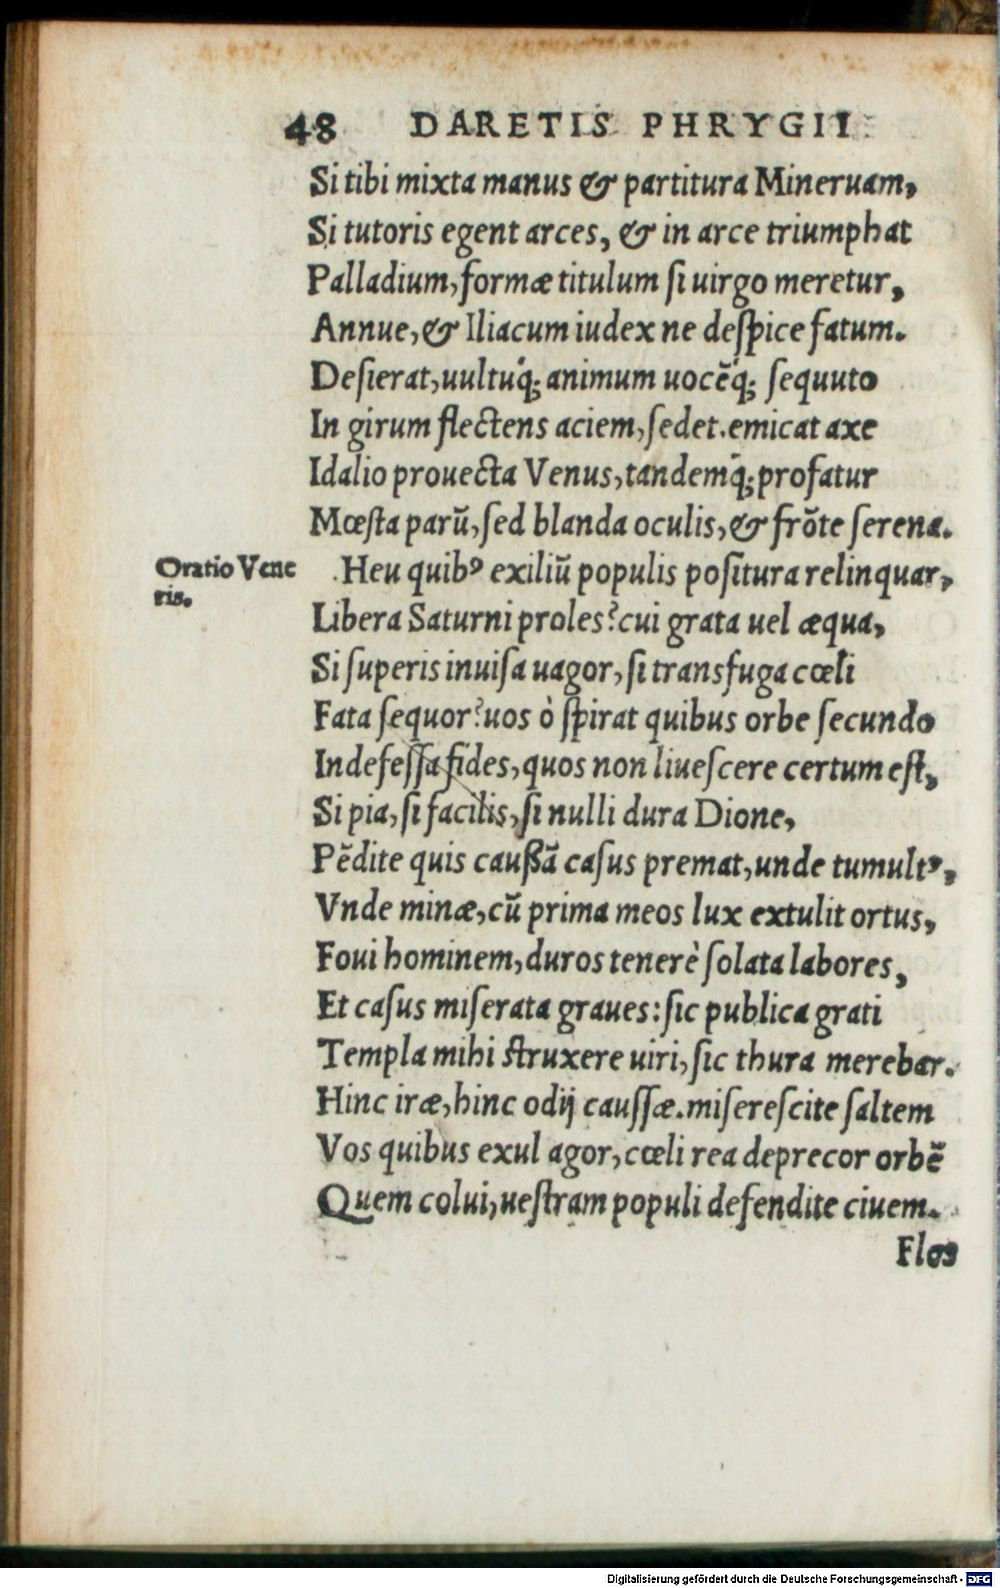 48 DARETIS PHRYGII
Si tibi mixta manus & partitura Mineruam,
Si tutoris egent arces, & in arce triumphat
Palladium, formæ titulum ſi uirgo meretur,
Annue, & Iliacum iudex ne deſpice fatum.
Deſierat, uultuq́; animum uocēq́; ſequuto
In girum flectens aciem, ſedet. emicat axe
Idalio prouecta Venus, tandemq́; profatur
Mœſta parū, ſed blanda oculis, & frōte ſerena.
Oratio Vene
ris.
Heu quibꝰ exiliū populis poſitura relinquar,
Libera Saturni proles? cui grata uel æqua,
Si ſuperis inuiſa uagor, ſi transfuga cœli
Fata ſequor? uos ò ſpirat quibus orbe ſecundo
Indefeſſa fides, quos non liueſcere certum eſt,
Si pia, ſi facilis, ſi nulli dura Dione,
Pēdite quis cauſſā caſus premat, unde tumultꝰ,
Vnde minæ, cū prima meos lux extulit ortus,
Foui hominem, duros tenerè ſolata labores,
Et caſus miſerata graues: ſic publica grati
Templa mihi ſtruxere uiri, ſic thura merebar.
Hinc iræ, hinc odij cauſſæ. miſereſcite ſaltem
Vos quibus exul agor, cœli rea deprecor orbē
Quem colui, ueſtram populi defendite ciuem.
Flos
Digitalisierung gefördert durch die Deutsche Forschungsgemeinschaft - DFG